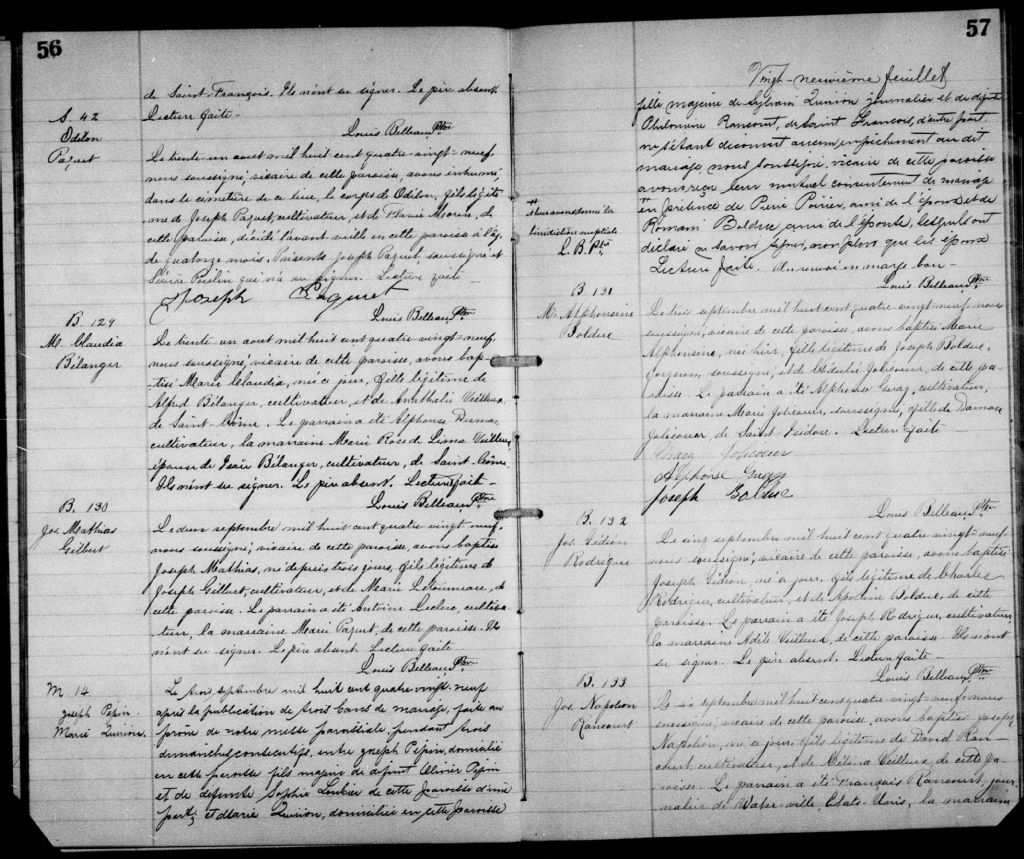 56
de Saint-François. Ils n'ont su signer. Le père absent.
S. 42
Odilon
Paquet
Lecture faite-
Louis Belleau Ptre
Le trente-un aout mil huit cent quatre-vingt-neuf,
nous soussigné, vicaire de cette paroisse, avons inhumé,
dans le cimetière de ce lieu, le corps de Odilon, fils légiti-
me de Joseph Paquet, cultivateur, et de Marie Morin, de
cette paroisse, décédé l'avant-veille en cette paroisse à l'âge
de quatorze mois. Présents Joseph Paquet, soussigné et
Poulin qui n'a su signer. Lecture faite-
Joseph Paquet
Louis Belleau Ptre
B. 129
M. Claudia
Bélanger
Le trente-un aout mil huit cent quatre-vingt-neuf,
nous soussigné, vicaire de cette paroisse, avons bap-
tisé Marie Claudia, née ce jour, fille légitime de
Alfred Bélanger, cultivateur, et de Amathalie Veilleux,
de Saint-Côme. Le parrain a été Alphonse Dumas,
cultivateur, la marraine Marie Rose de Lima Veilleux,
épouse de Isaïe Bélanger, cultivateur, de Saint-Côme.
Ils n'ont su signer. Le père absent. Lecture faite-
Louis Belleau Ptre
B. 130
Jos. Mathias
Gilbert
Le deux septembre mil huit cent quatre-vingt-neuf,
nous soussigné, vicaire de cette paroisse, avons baptisé
Joseph Mathias, né depuis trois jours, fils légitime de
Joseph Gilbert, cultivateur, et de Marie Létourneau, de
cette paroisse. Le parrain a été Antoine Leclerc, cultiva-
teur, la marraine Marie Paquet, de cette paroisse. Ils
n'ont su signer. Le père absent. Lecture faite-
Louis Belleau Ptre
M 14.
Joseph Pepin.
Marie Quirion.
Le trois septembre mil huit cent quatre-vingt-neuf
après la publication de trois bans de mariage, faite au
prône de notre messe paroissiale, pendant trois
dimanches consécutifs, entre Joseph Pepin, domicilié
en cette paroisse fils majeur de defunt Olivier Pepin
et de defunte Sophie Loubier de cette paroisse d'une
part; et Marie Quirion, domiciliée en cette paroisse
57
Vingt-neuvième feuillet
fille majeure de Sylvain Quirion journalier et de défunte
Philomine Rancourt, de Saint François, d'autre part.
ne s'étant découvert aucun empêchement au dit
mariage, nous soussigné, vicaire de cette paroisse
avons reçu leur mutuel consentement de mariage
en présence de Pierre Poirier, ami de l'époux et de
Romain Bolduc ami de l'épouse, lesquels ont
déclaré ne savoir signer, non plus que les époux
Lecture faite. Un renvoi en marge bon-
# leur avons donné la
bénédiction nuptiale
L. B. Ptre
Louis Belleau Ptre
B. 131
M. Alphonsine
Bolduc
Le trois septembre mil huit cent quatre-vingt-neuf, nous
soussigné, vicaire de cette paroisse, avons baptisé Marie
Alphonsine, née hier, fille légitime de Joseph Bolduc,
forgeron, soussigné, et de Joliceur, de cette pa-
roisse. Le parrain a été Alphonse Guay, cultivateur,
la marraine Marie Jolicouer, soussignés, fille de Damase
Jolicouer, de Saint Isidore. Lecture faite-
Jolicouer
Alphonse Guay
Joseph Bolduc
Louis Belleau Ptre
B. 132
Jos. Gédéon
Rodrigue
Le cinq septembre mil huit cent quatre-vingt-neuf,
nous soussigné, vicaire de cette paroisse, avons baptisé
Joseph Gédéon, né ce jour, fils légitime de Charles
Rodrigue, cultivateur, et de Bolduc, de cette
paroisse. Le parrain a été Joseph Rodrigue, cultivateur,
la marraine Adèle Veilleux, de cette paroisse. Ils n'ont
su signer. Le père absent. Lecture faite-
Louis Belleau Ptre
B. 133
Jos. Napoléon
Rancourt
Le six septembre mil huit cent quatre-vingt-neuf, nous
soussigné, vicaire de cette paroisse, avons baptisé Joseph
Napoléon, né ce jour, fils légitime de David Ran-
court, cultivateur, et de Célina Veilleux, de cette pa-
roisse. Le parrain a été François Rancourt, jour-
nalier de Water-ville, Etats-Unis, la marraine